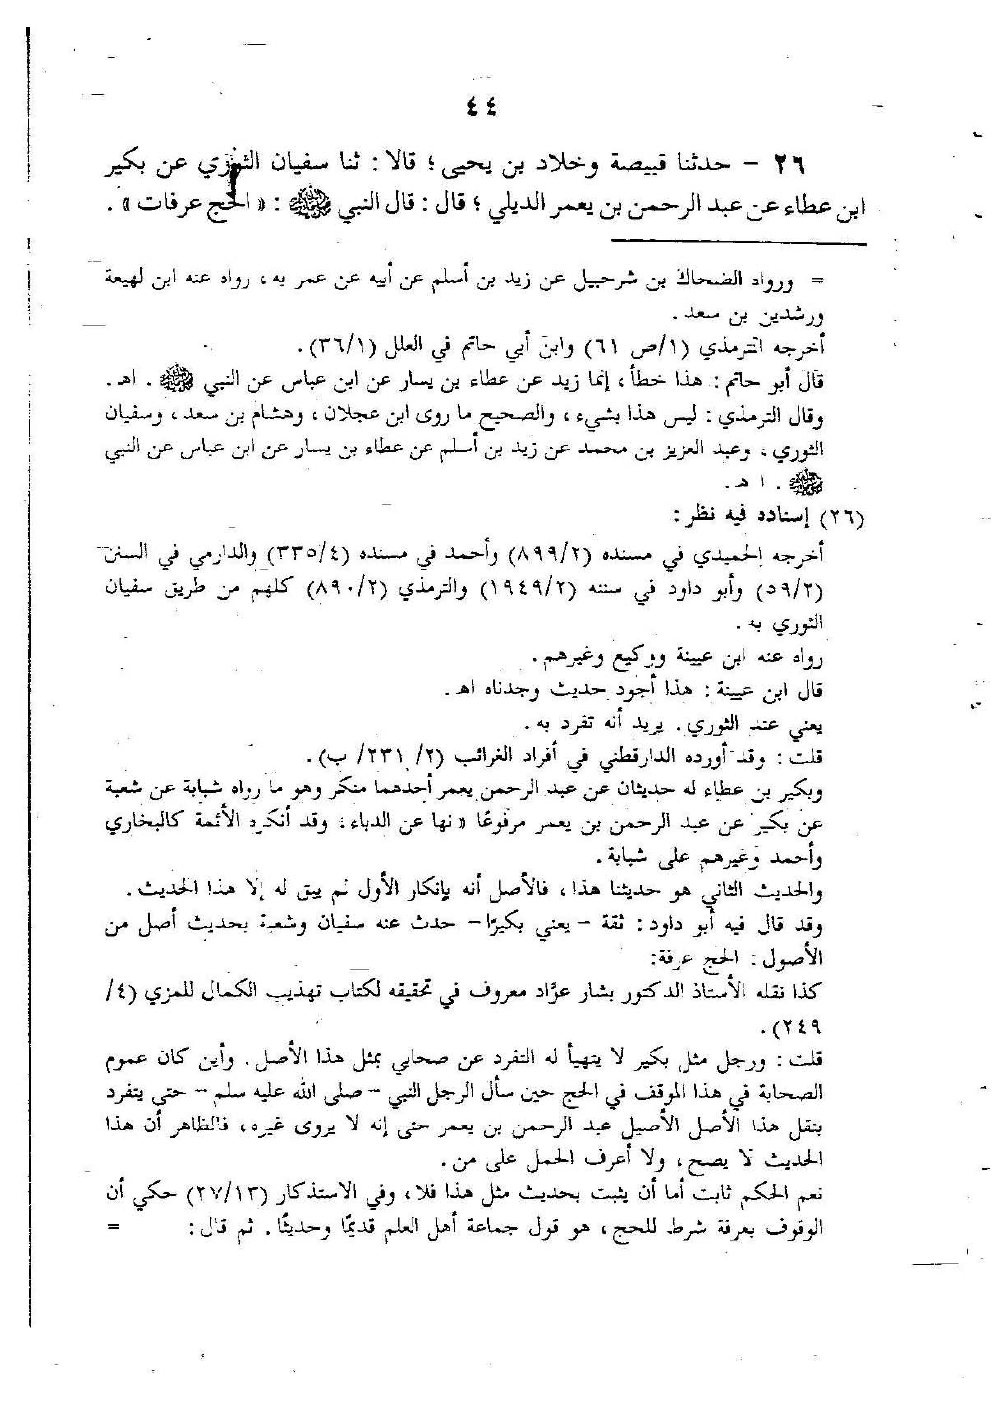 ٤٤
٢٦ - حدثنا قبيصة وخلاد بن يحيى ؛ قالا : ثنا سفيان الثوري عن بكير
ابن عطاء عن عبد الرحمن بن يعمر الديلي ؛ قال : قال النبي ﷺ : « الحج عرفات » .
= ورواه الضحاك بن شرحبيل عن زيد بن أسلم عن أبيه عن عمر به ، رواه عنه ابن لهيعة
ورشدين بن سعد .
أخرجه الترمذي (١/ص ٦١) وابن أبي حاتم في العلل (٣٦/١) .
قال أبو حاتم : هذا خطأ ، إنما زيد عن عطاء بن يسار عن ابن عباس عن النبي ﷺ . اهـ .
وقال الترمذي : ليس هذا بشيء ، والصحيح ما روى ابن عجلان ، وهشام بن سعد ، وسفيان
الثوري ، وعبد العزيز بن محمد عن زيد بن أسلم عن عطاء بن يسار عن ابن عباس عن النبي
ﷺ . ا هـ .
(٢٦) إسناده فيه نظر :
أخرجه الحميدي في مسنده (٨٩٩/٢) وأحمد في مسنده (٣٣٥/٤) والدارمي في السنن
(٥٩/٢) وأبو داود في سننه (١٩٤٩/٢) والترمذي (٨٩٠/٢) كلهم من طريق سفيان
الثوري به .
رواه عنه ابن عيينة ووكيع وغيرهم .
قال ابن عيينة : هذا أجود حديث وجدناه اهـ .
يعني عند الثوري . يريد أنه تفرد به .
قلت : وقد أورده الدارقطني في أفراد الغرائب (٢/ ٢٣١/ ب) .
وبكير بن عطاء له حديثان عن عبد الرحمن يعمر أحدهما منكر وهو ما رواه شبابة عن شعبة
عن بكير عن عبد الرحمن بن يعمر مرفوعًا « نها عن الدباء : وقد أنكره الأئمة كالبخاري
وأحمد وغيرهم على شبابة .
والحديث الثاني هو حديثنا هذا ، فالأصل أنه بإنكار الأول لم يبق له إلا هذا الحديث .
وقد قال فيه أبو داود : ثقة - يعني بكيرًا - حدث عنه سفيان وشعبة بحديث أصل من
الأصول : الحج عرفة :
كذا نقله الأستاذ الدكتور بشار عوَّاد معروف في تحقيقه لكتاب تهذيب الكمال للمزي (٤/
٢٤٩) .
قلت : ورجل مثل بكير لا يتهيأ له التفرد عن صحابي بمثل هذا الأصل . وأين كان عموم
الصحابة في هذا الموقف في الحج حين سأل الرجل النبي - صلى الله عليه سلم - حتى يتفرد
بنقل هذا الأصل الأصيل عبد الرحمن بن يعمر حتى إنه لا يروى غيره ، فالظاهر أن هذا
الحديث لا يصح ، ولا أعرف الحمل على من .
نعم الحكم ثابت أما أن يثبت بحديث مثل هذا فلا ، وفي الاستذكار (٢٧/١٣) حكي أن
الوقوف بعرفة شرط للحج ، هو قول جماعة أهل العلم قديمًا وحديثًا . ثم قال : =